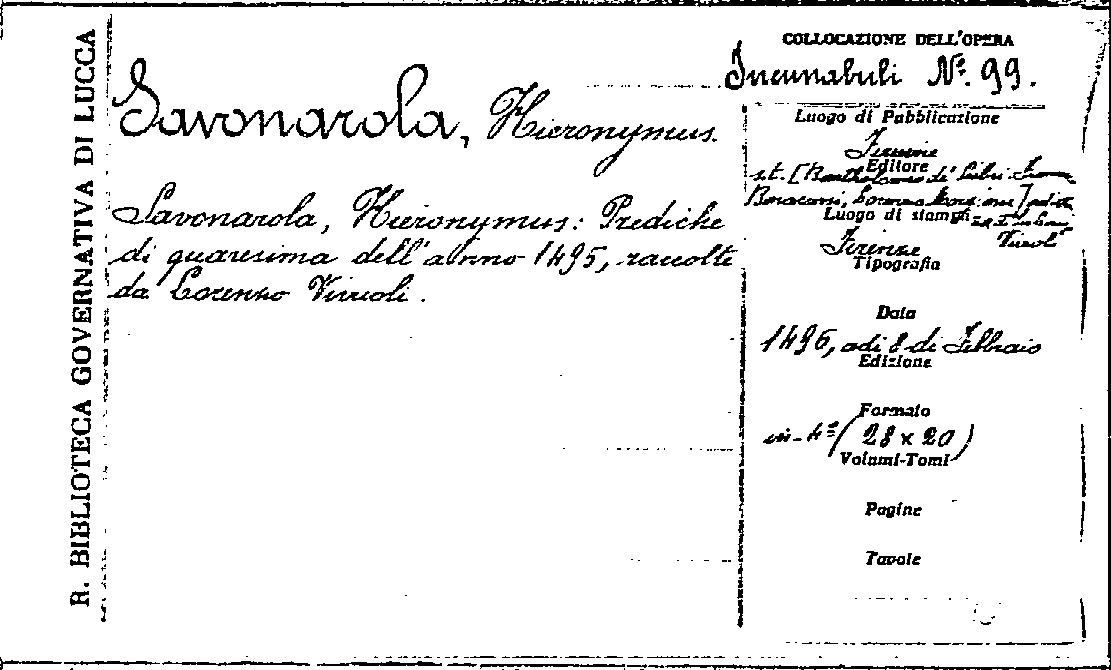 R. BIBLIOTECA GOVERNATIVA DI LUCCA
COLLOCAZIONE DELL'OPERA
Incunabuli Nº. 99.
Savonarola, Hieronymus.
Savonarola, Hieronymus: Prediche
di quaresima dell'anno 1495, raccolte
da Lorenzo Vivioli.
Luogo di Pubblicazione
Firenze
Editore
s.t. [Bartholomeo de' Libri
Lorenzo
Luogo di stampa
Firenze
Tipografia
Data
1496, adi 8 di Febbraio
Edizione
Formato
in-4º (28 x 20)
Volumi-Tomi
Pagine
Tavole